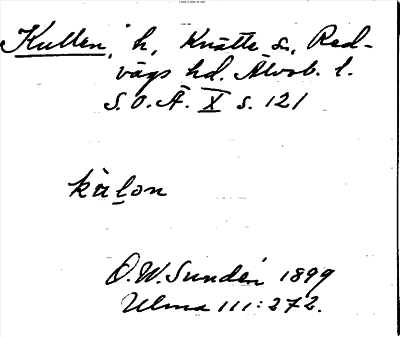 Kullen, h, Knätte s., Red-
vägs hd. Älvsb. l.
S.O.Ä. X s. 121
O.W. Sundén 1899
Ulma 111:272.